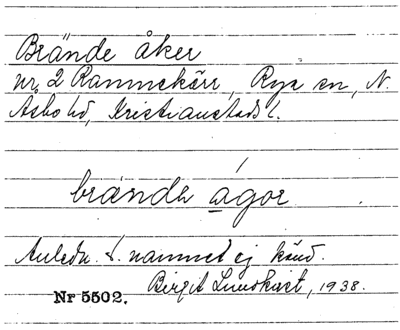 Brände åker
nr 2 Rammekärr, Rya sn, N.
Asbo hd, Kristianstads l.
brändə ágor
Anledn. t. namnet ej känd.
Birgit Lundkvist, 1938.
Nr 5502.